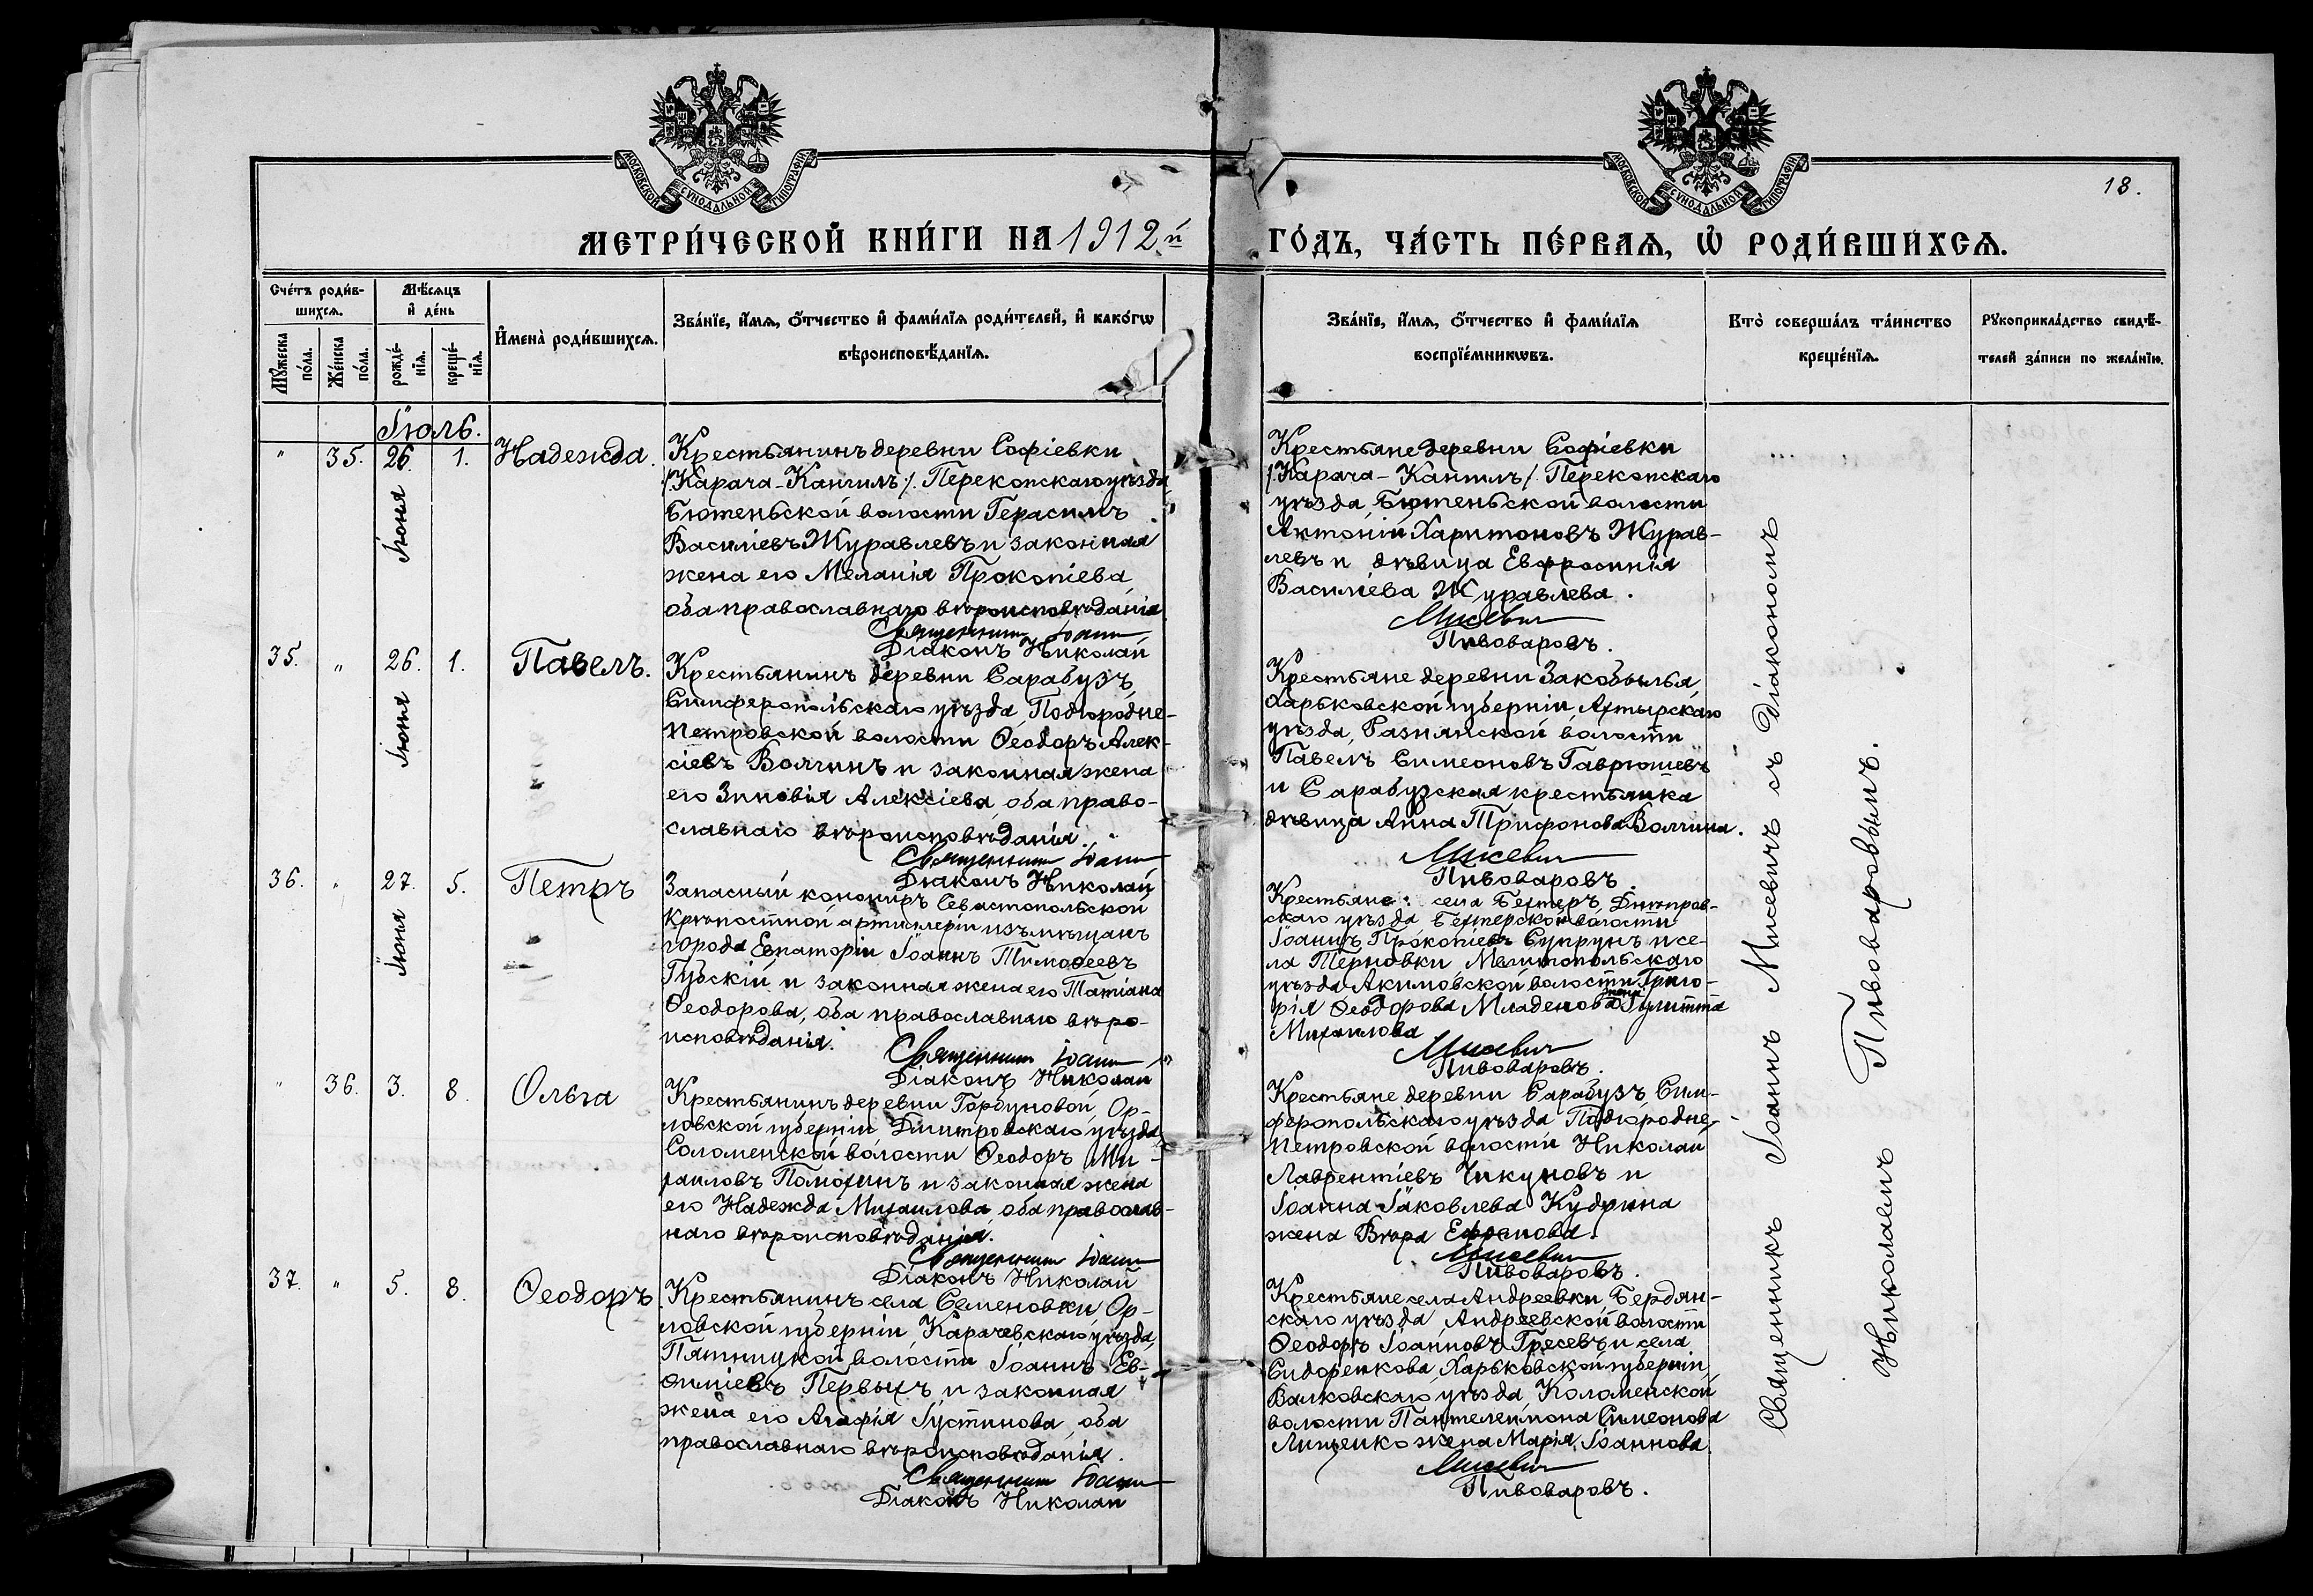 МОСКОВСКОЙ СѴНОДАЛЬНОЙ ТИПОГРАФІИ
МОСКОВСКОЙ СѴНОДАЛЬНОЙ ТИПОГРАФІИ
18.
МЕТРИ́ЧЕСКОЙ КНИ́ГИ НА 1912 й
ГО́ДЪ, ЧА́СТЬ ПЕ́РВАѦ, Ѡ҆ РОДИ́ВШИХСѦ.
Сче́тъ роди́в-
шихсѧ.
Мѣ́сѧцъ
и҆ де́нь
Мꙋ́жеска
по́ла.
Же́нска
по́ла.
рожде́-
нїѧ.
креще́-
нїѧ.
И҆мена̀ роди́вшихсѧ.
Зва́нїе, и҆́мѧ, ѻ҆́тчество и҆ фами́лїѧ роди́телей, и҆ како́гѡ
вѣроисповѣ́данїѧ.
Зва́нїе, и҆́мѧ, ѻ҆́тчество и҆ фами́лїѧ
воспрїе́мникѡвъ.
Кто̀ соверша́лъ та́инство
креще́нїѧ.
Рꙋкоприкла́дство свидѣ́-
телей за́писи по жела́нїю.
Іюль.
" 35. 26. 1. Надежда.
Іюня
Крестьянинъ деревни Софіевки
/Карача-Кангилъ/. Перекопскаго уѣзда,
Бютеньской волости Герасимъ
Василіевъ Журавлевъ и законная
жена его Меланія Прокопіева,
оба православнаго вѣроисповѣданія.
Священникъ Іоаннъ
Діаконъ Николай
Крестьяне деревни Софіевки
/Карача-Кангилъ/. Перекопскаго
уѣзда, Бютеньской волости
Антоній Харитоновъ Журав-
левъ и дѣвица Евфросинія
Василіева Журавлева.
Мисевичъ
Пивоваровъ.
35. " 26. 1. Павелъ.
Іюня
Крестьянинъ деревни Сарабузъ,
Симферопольскаго уѣзда, Подгородне-
Петровской волости Ѳеодоръ Алек-
сіевъ Волчинъ и законная жена
его Зиновія Алексіева, оба право-
славнаго вѣроисповѣданія.
Священникъ Іоаннъ
Діаконъ Николай
Крестьяне деревни Закобылья
Харьковской губерніи Ахтырскаго
уѣзда, Рязнянской волости
Павелъ Симеоновъ Гаврюшевъ
и Сарабузская крестьянка
дѣвица Анна Трифонова Волчина.
Мисевичъ
Пивоваровъ.
36. " 27. 5. Петръ
Іюня
Запасный канониръ Севастопольской
крѣпостной артиллеріи изъ мѣщанъ
города Евпаторіи Іоаннъ Тимоѳеевъ
Губскій и законная жена его Татіана
Ѳеодорова, оба православнаго вѣро-
исповѣданія.
Священникъ Іоаннъ
Діаконъ Николай
Крестьяне: села Бехтеръ, Днѣпров-
скаго уѣзда Бехтерской волости
Іоаннъ Прокопіевъ Супрунъ и се-
ла Терновки Мелитопольскаго
уѣзда Акимовской волости Григо-
рія Ѳеодорова Младенова жена Іулитта
Михаилова
Мисевичъ
Пивоваровъ.
" 36. 3. 8. Ольга
Крестьянинъ деревни Горбуновой, Ор-
ловской губерніи Дмитровскаго уѣзда
Соломенской волости Ѳеодоръ Ми-
хаиловъ Помохинъ и законная жена
его Надежда Михаилова, оба православ-
наго вѣроисповѣданія.
Священникъ Іоаннъ
Діаконъ Николай
Крестьяне деревни Сарабузъ, Сим-
феропольскаго уѣзда Подгородне-
Петровской волости Николай
Лаврентіевъ Чикуновъ и
Іоанна Іаковлева Кудрина
жена Вѣра Ефремова.
Мисевичъ
Пивоваровъ.
37. " 5. 8. Ѳеодоръ
Крестьянинъ села Семеновки, Ор-
ловской губерніи Карачевскаго уѣзда,
Пятницкой волости Іоаннъ Ев-
ѳиміевъ Первыхъ и законная
жена его Агафія Іустинова, оба
православнаго вѣроисповѣданія.
Священникъ Іоаннъ
Діаконъ Николай
Крестьяне села Андреевки, Бердян-
скаго уѣзда, Андреевской волости
Ѳеодоръ Іоанновъ Гресевъ и села
Сидоренкова, Харьковской губерніи
Валковскаго уѣзда, Коломенской
волости Пантелеимона Симеонова
Лищенко жена Марія Іоаннова.
Мисевичъ
Пивоваровъ.
Священникъ Іоаннъ Мисевичъ съ Діакономъ
Николаемъ Пивоваровымъ.